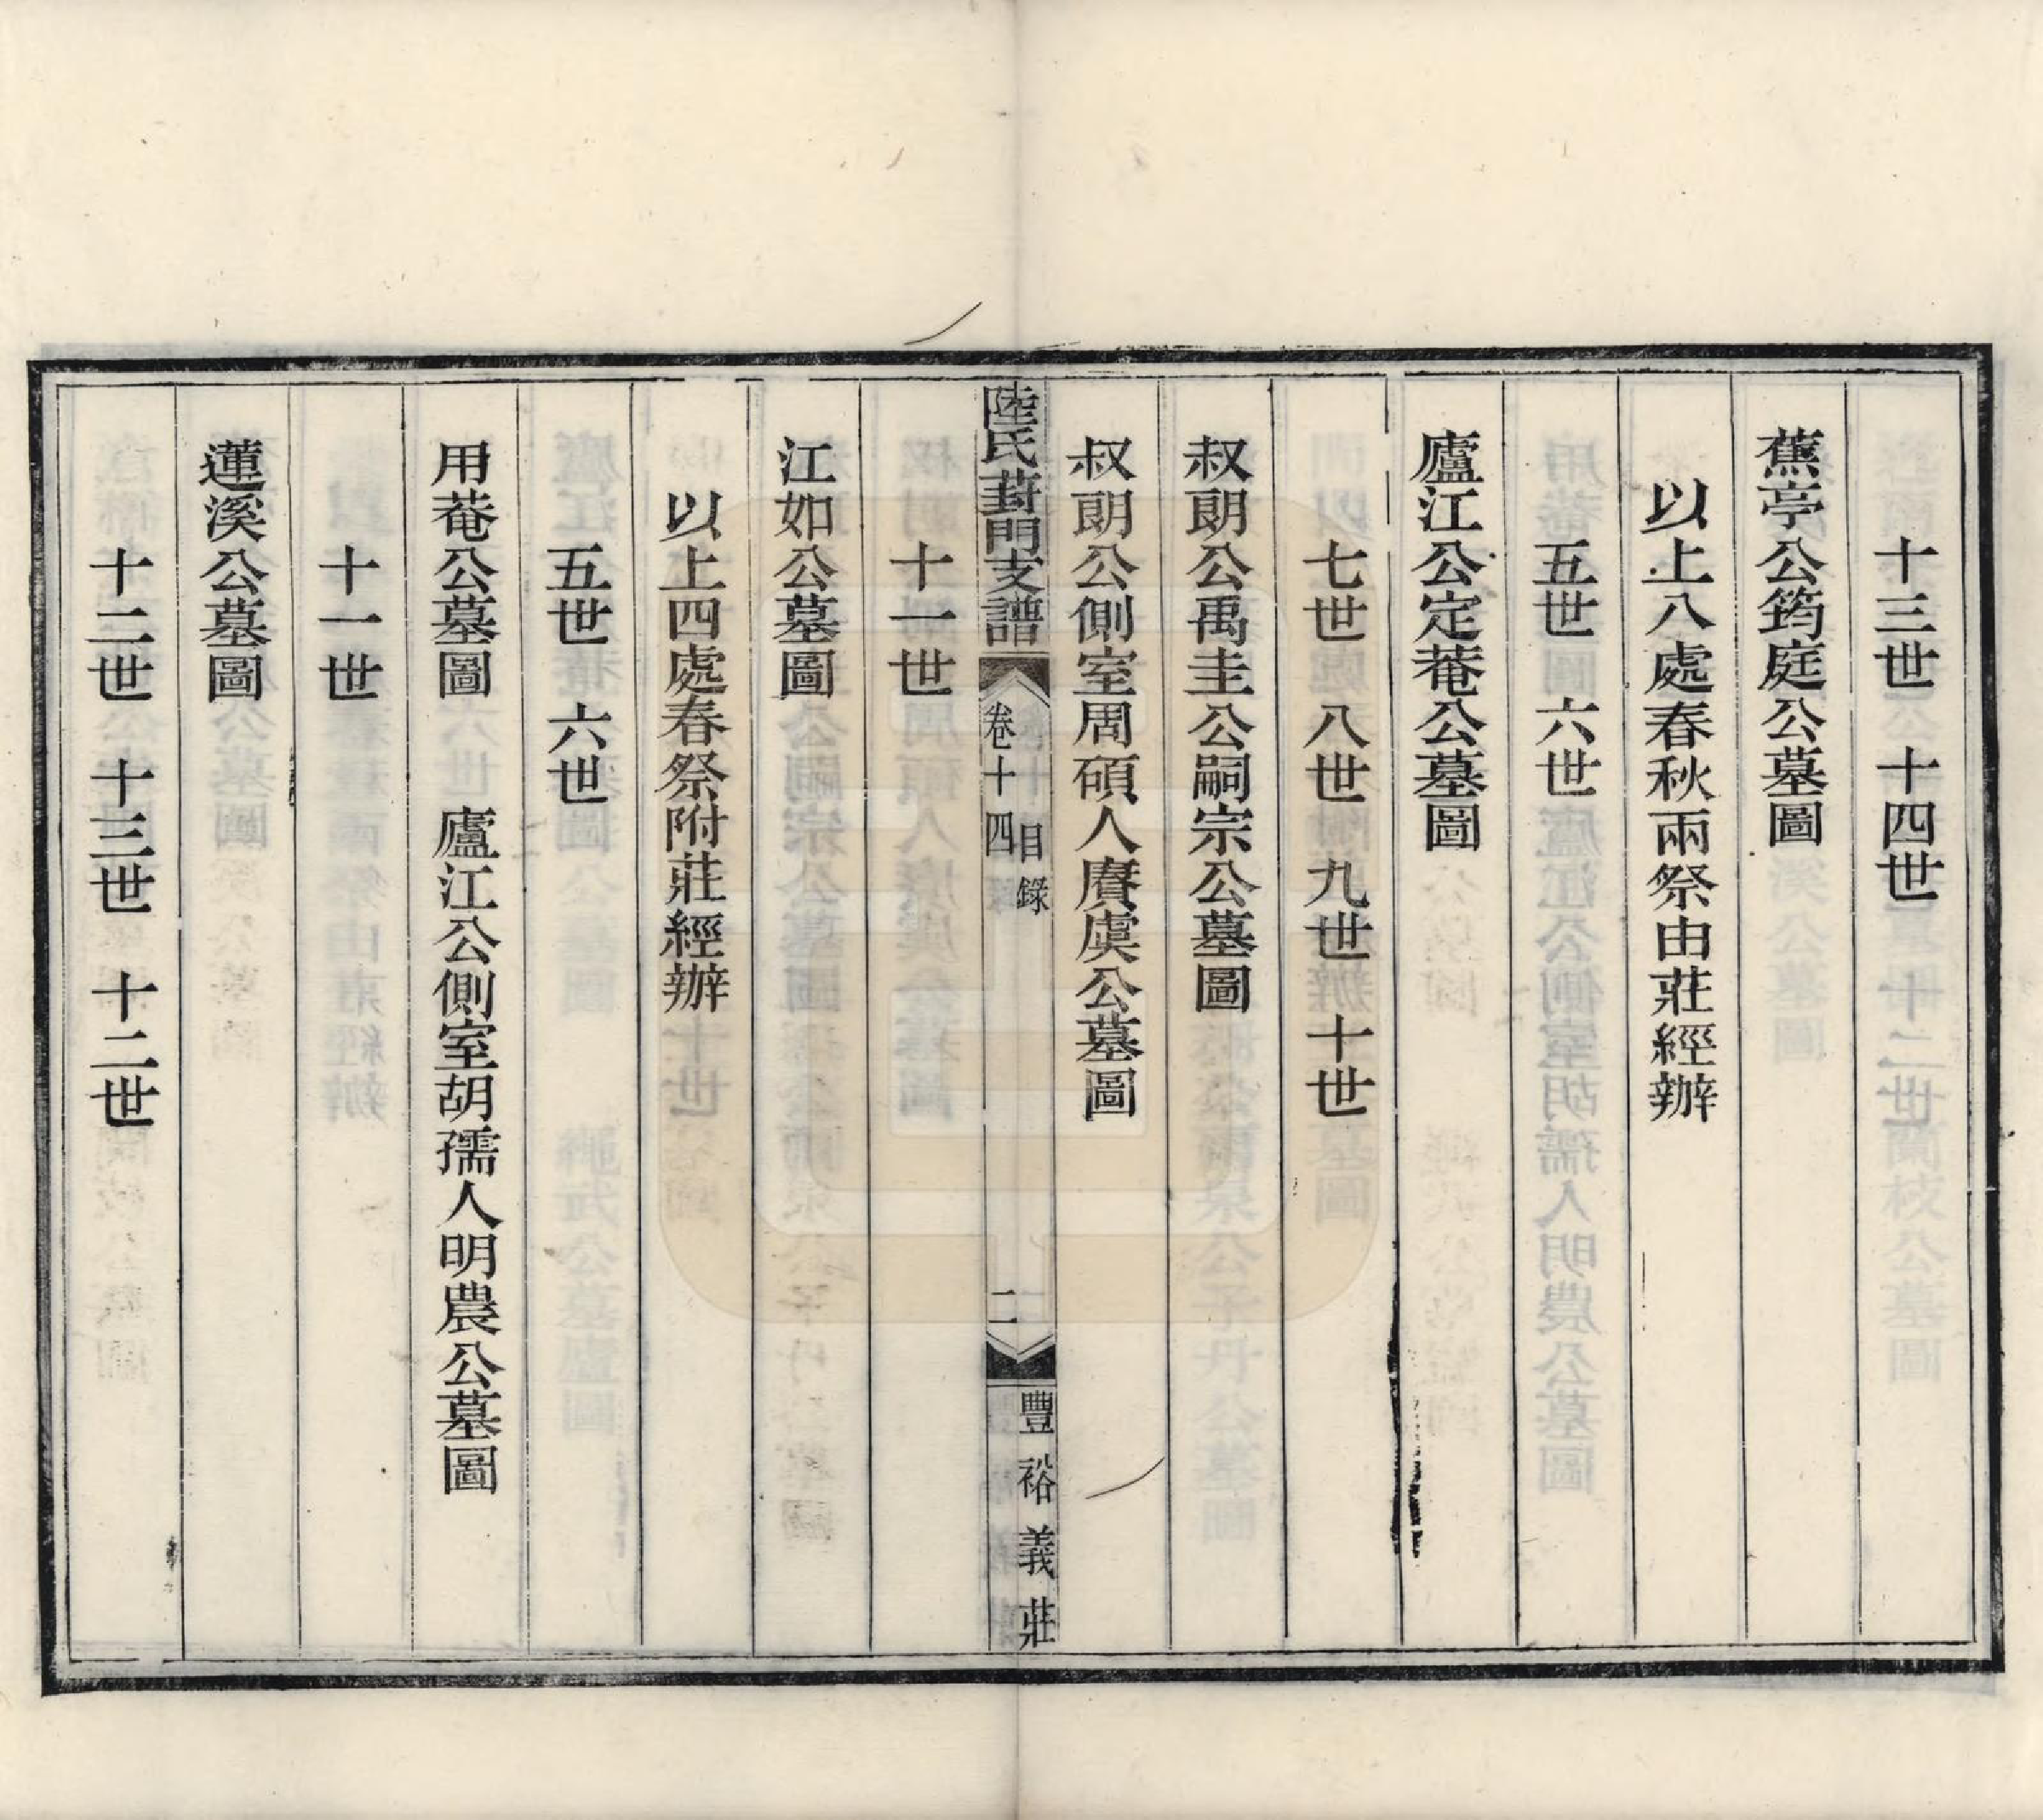 十三世　十四世
蕉亭公筠庭公墓圖
以上八處春秋兩祭由莊經辦
五世　六世
廬江公定菴公墓圖
七世　八世　九世　十世
叔朗公禹圭公嗣宗公墓圖
叔朗公側室周碩人賡虞公墓圖
陸氏葑門支譜
卷十四
目錄
二
豐裕義莊
十一世
江如公墓圖
以上四處春祭附莊經辦
五世　六世
用菴公墓圖　廬江公側室胡孺人明農公墓圖
十一世
蓮溪公墓圖
十二世　十三世　十二世